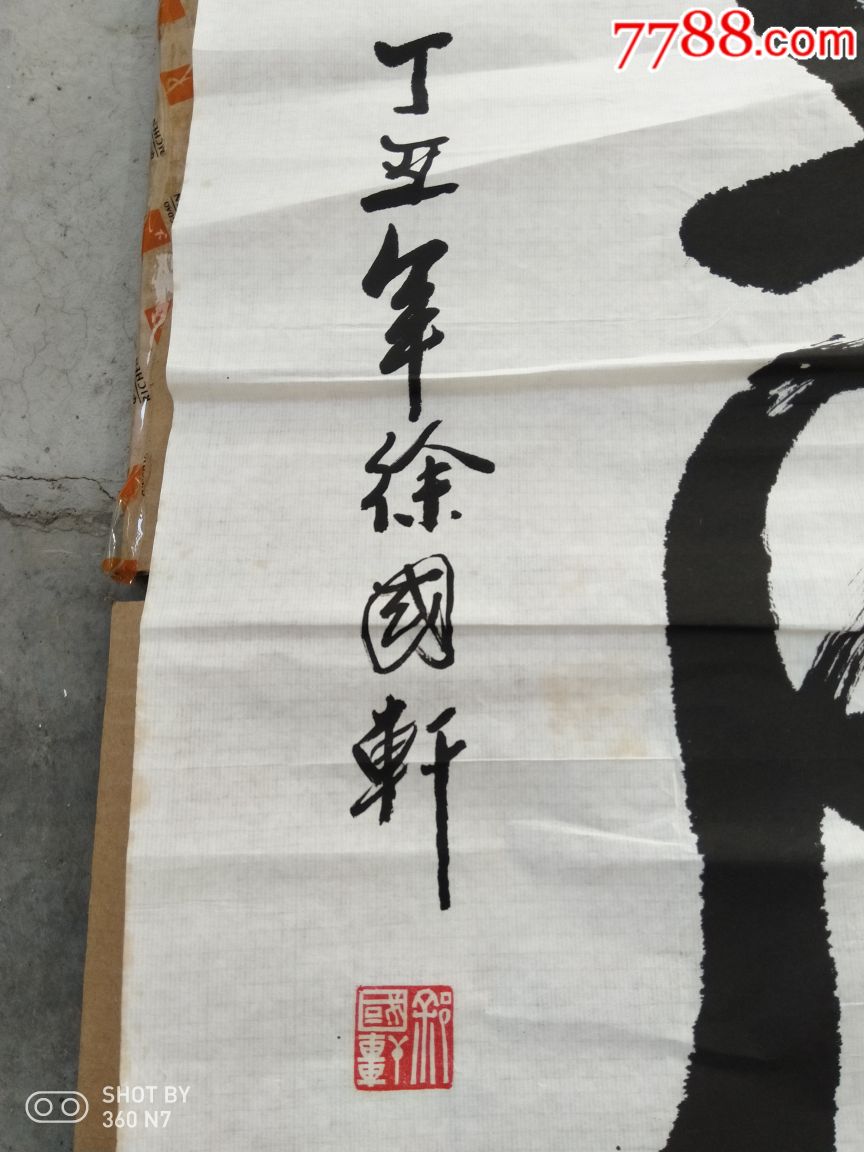 7788.com
丁丑年徐國軒
徐國軒
SHOT BY
360 N7